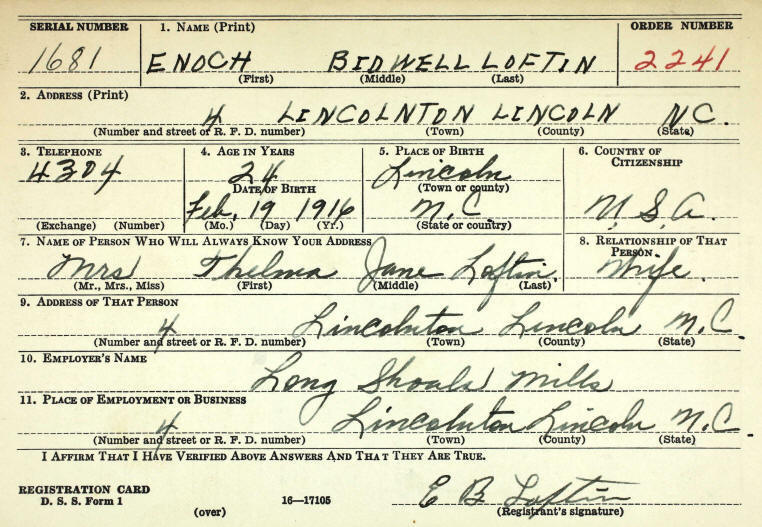 SERIAL NUMBER 1. NAME (Print) ORDER NUMBER
1681 ENOCH BIDWELL LOFTIN 2241
(First) (Middle) (Last)
2. ADDRESS (Print)
4 LINCOLNTON LINCOLN NC.
(Number and street or R. F. D. number) (Town) (County) (State)
3. TELEPHONE 4. AGE IN YEARS 5. PLACE OF BIRTH 6. COUNTRY OF CITIZENSHIP
4304 24 Lincoln
DATE OF BIRTH (Town or county)
Feb. 19 1916 N.C. U.S.A.
(Exchange) (Number) (Mo.) (Day) (Yr.) (State or country)
7. NAME OF PERSON WHO WILL ALWAYS KNOW YOUR ADDRESS 8. RELATIONSHIP OF THAT PERSON
Mrs Thelma Jane Loftin Wife.
(Mr., Mrs., Miss) (First) (Middle) (Last)
9. ADDRESS OF THAT PERSON
4 Lincolnton Lincoln N.C.
(Number and street or R. F. D. number) (Town) (County) (State)
10. EMPLOYER'S NAME
Long Shoals Mills
11. PLACE OF EMPLOYMENT OR BUSINESS
4 Lincolnton Lincoln N.C.
(Number and street or R. F. D. number) (Town) (County) (State)
I AFFIRM THAT I HAVE VERIFIED ABOVE ANSWERS AND THAT THEY ARE TRUE.
REGISTRATION CARD
D. S. S. Form 1 16—17105 E B Loftin
(over) (Registrant's signature)